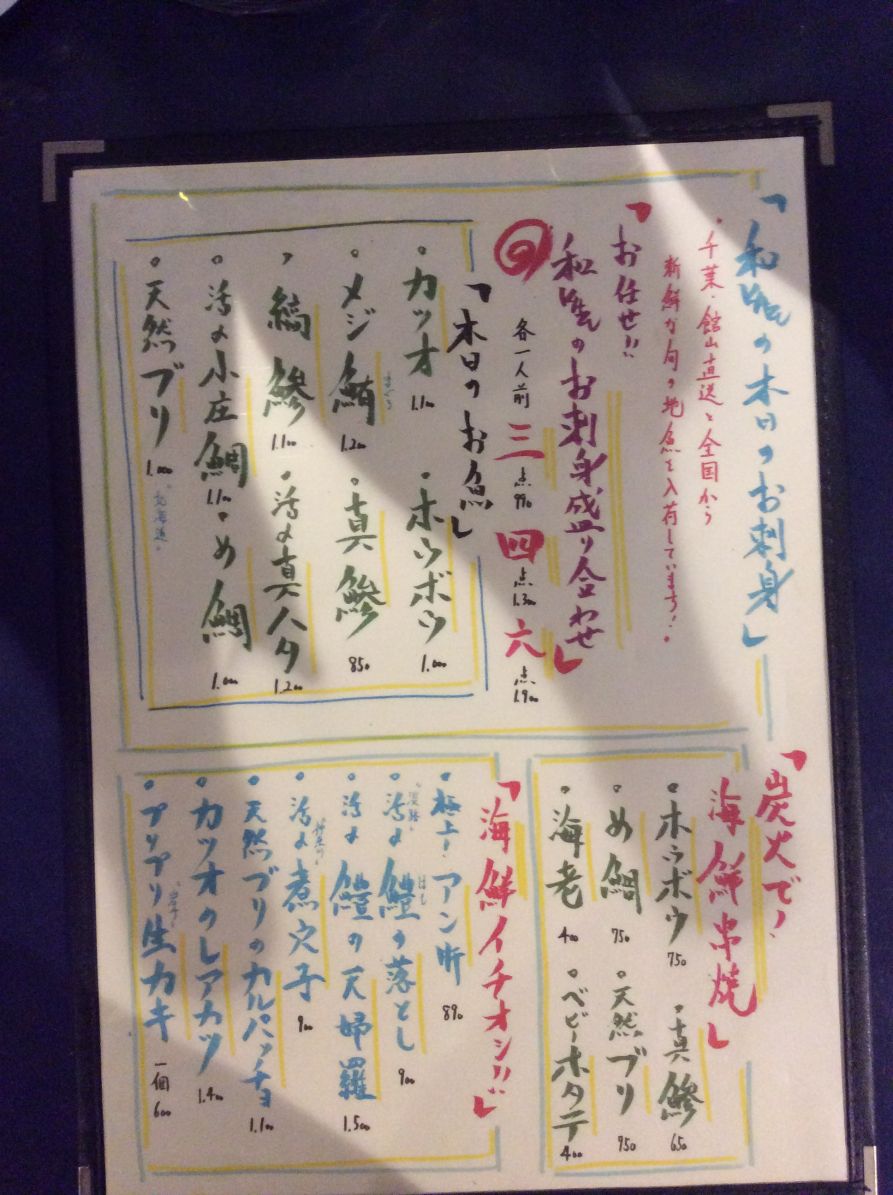 「和＿の本日のお刺身」
・千葉・館山直送と全国から
新鮮な旬の地魚を入荷しています！。
「お任せ!!
和＿のお刺身盛り合わせ」
各一人前 三点 990 四点 1.300 六点 1.900
「本日のお魚」
。カツオ 1.100 。ホウボウ 1.000
。メジ鮪 まぐろ 1.200 。真鯵 850
、縞鯵 1.100 。活〆真八タ 1.200
。活〆小庄鯛 1.100 。め鯛 1.000
。天然ブリ 1.000 。北海道。
「炭火で！
海鮮串焼」
。ホウボウ 750 。真鯵 650
。め鯛 750 。天然ブリ 950
。海老 400 。ベビーホタテ 400
「海鮮イチオシ!!」
。極上！アン肝 890
。淡路。活〆鱧の落とし はも 900
。活〆鱧の天婦羅 1.500
。活〆煮穴子 900
。天然ブリのカルパッチョ 1.100
。カツオのレアカツ 1.400
。プリプリ生カキ 一個 600